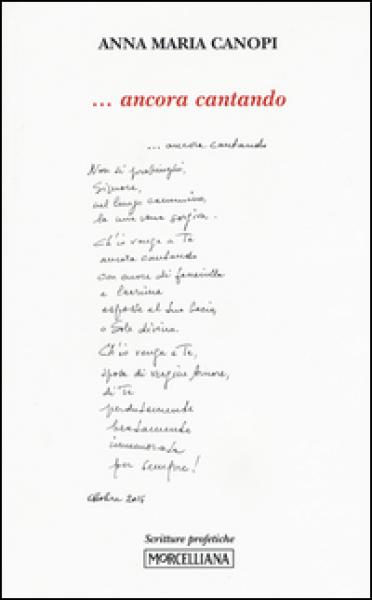 ANNA MARIA CANOPI
... ancora cantando
... ancora cantando
Non si prosciughi,
Signore,
nel lungo cammino,
la mia vena sorgiva.
Ch'io venga a Te
ancora cantando
con cuore di fanciulla
e lacrima
esposta al Suo bacio,
o Sole divino.
Ch'io venga a Te,
sposa di vergine Amore,
di Te
perdutamente
beatamente
innamorata
per sempre!
Ottobre
Scritture profetiche
MORCELLIANA